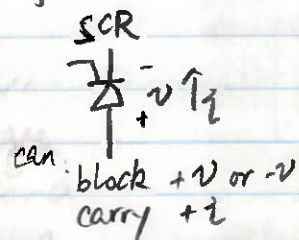 SCR
-
v ↑i
+
can block +v or -v
carry +i